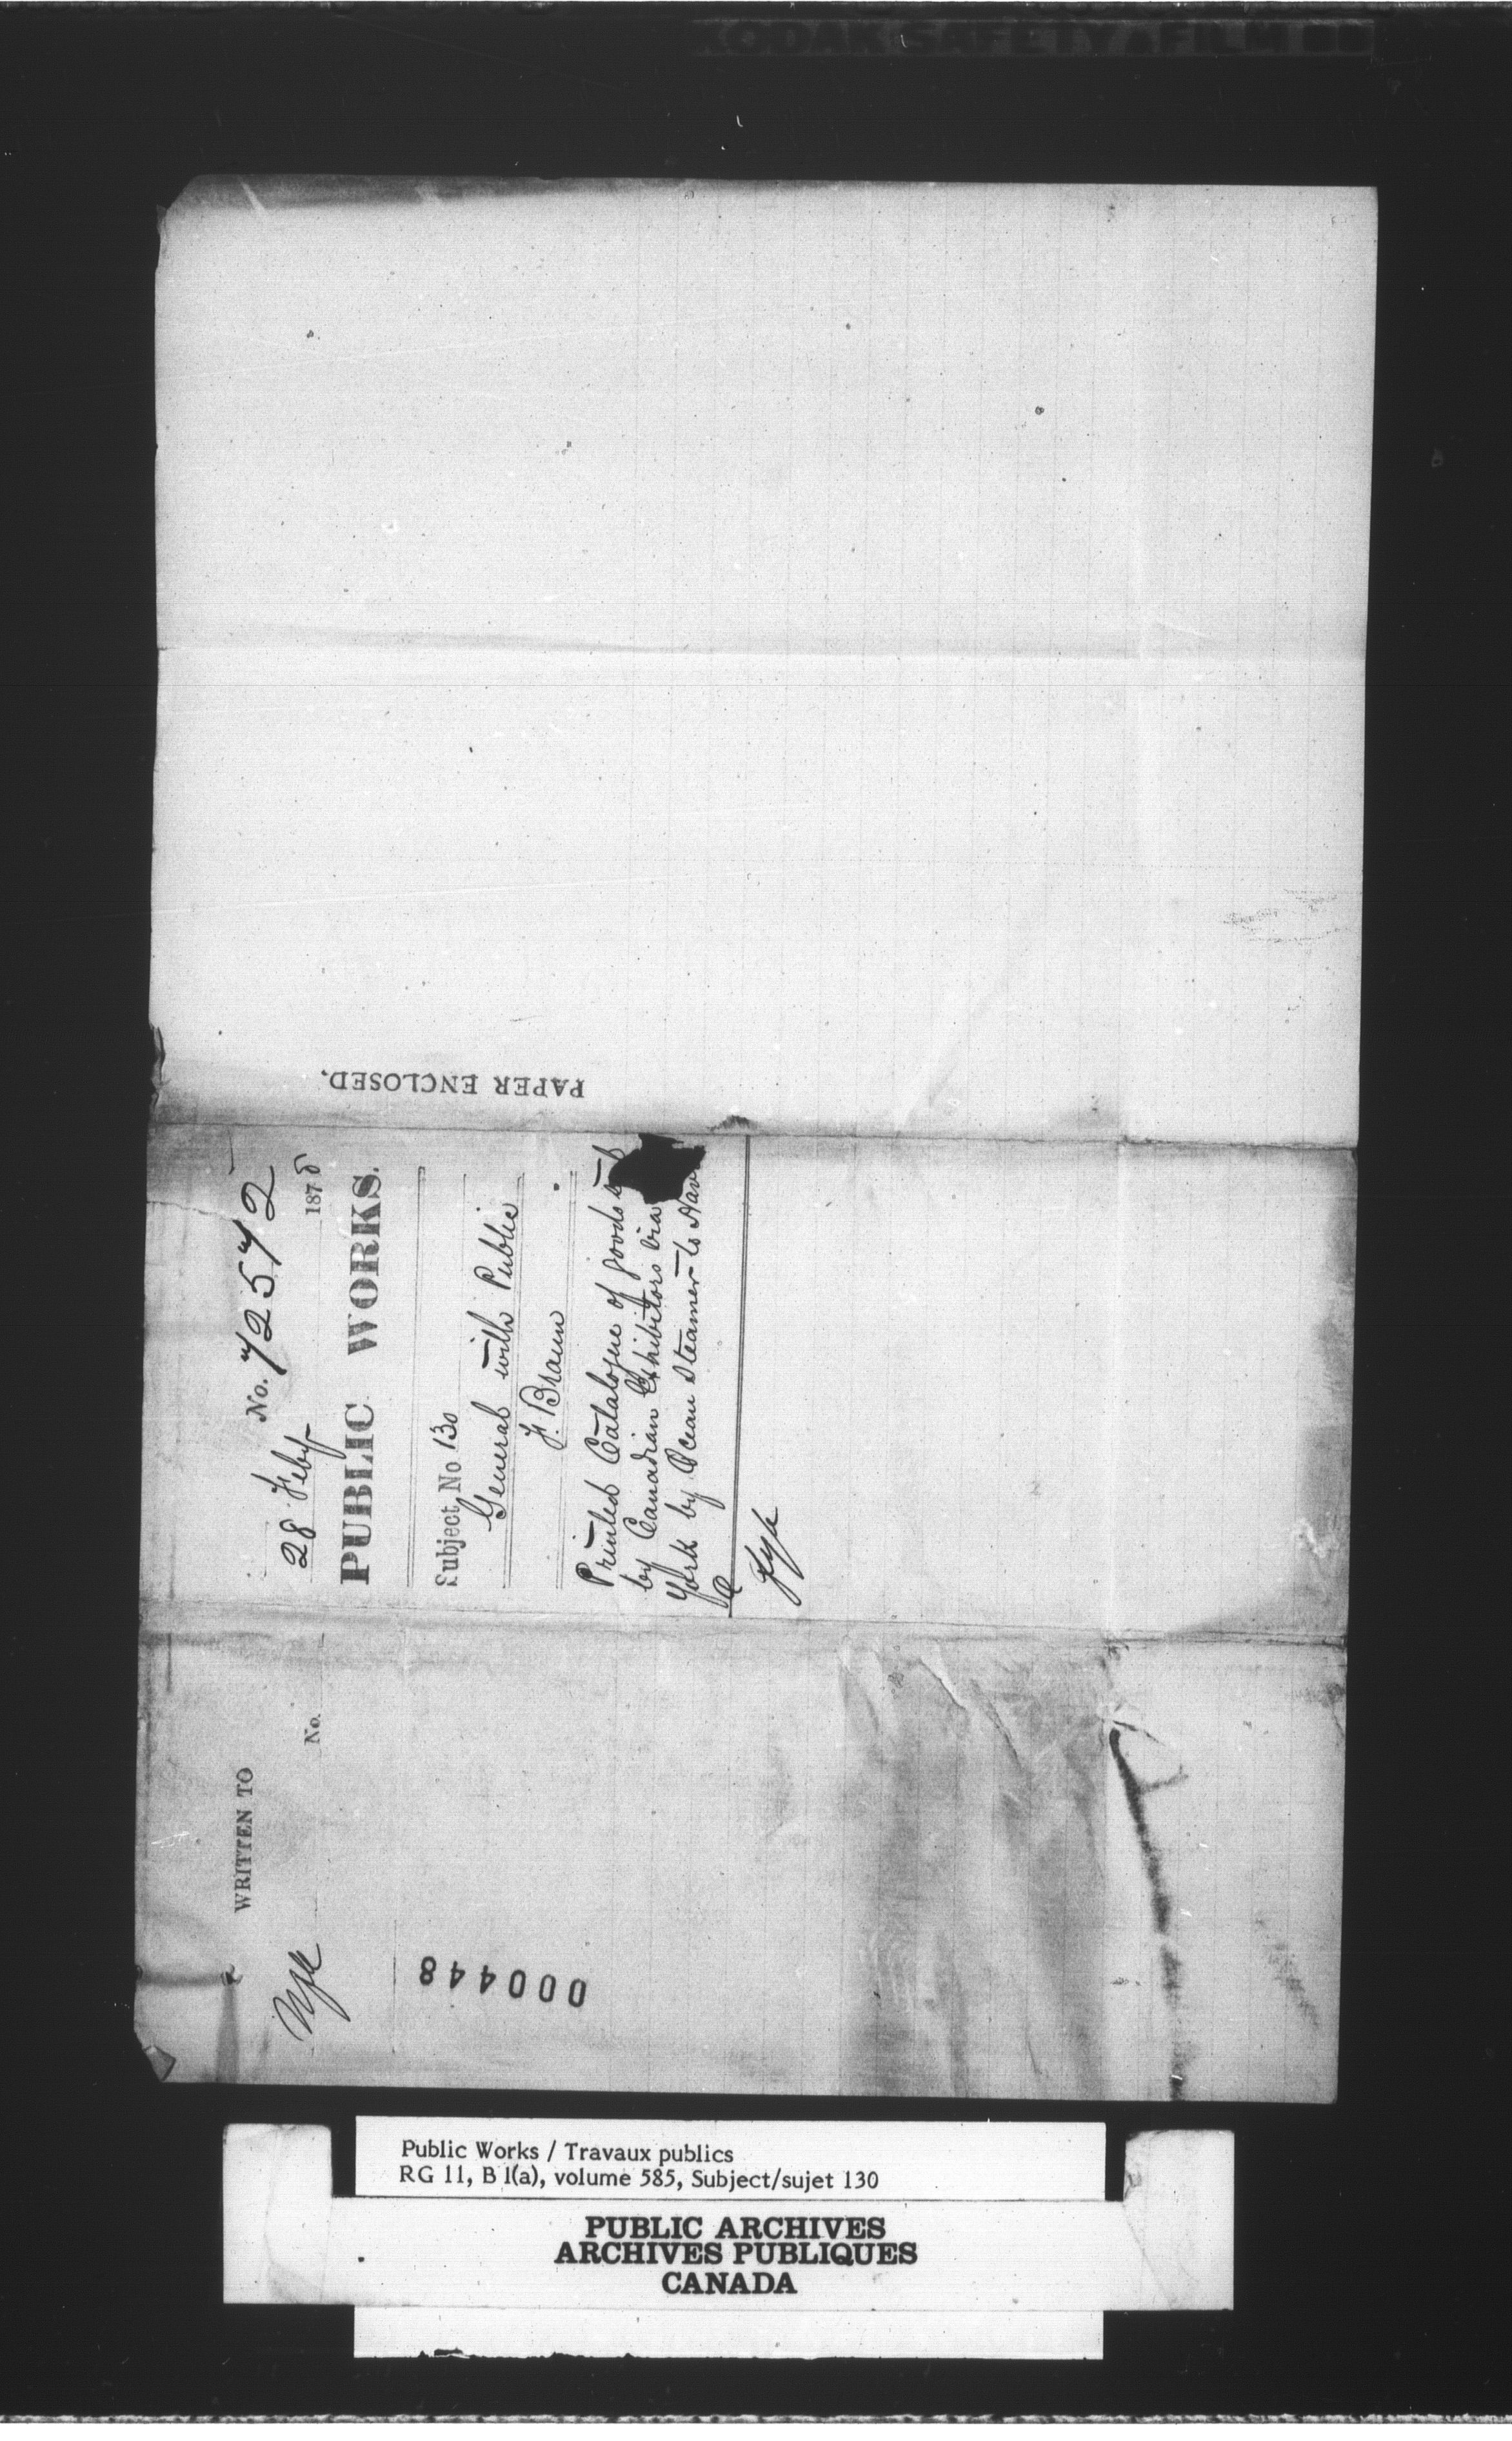 KODAK SAFETY FILM
PAPER ENCLOSED.
No. 72572
28 Feby 1878
PUBLIC WORKS.
Subject No 130
General with Public
F. Braun
Printed Catalogue of goods
by Canadian Exhibitors via
York by Ocean Steamer to Hav
WRITTEN TO
No.
000448
Public Works / Travaux publics
RG 11, B 1(a), volume 585, Subject/sujet 130
PUBLIC ARCHIVES
ARCHIVES PUBLIQUES
CANADA